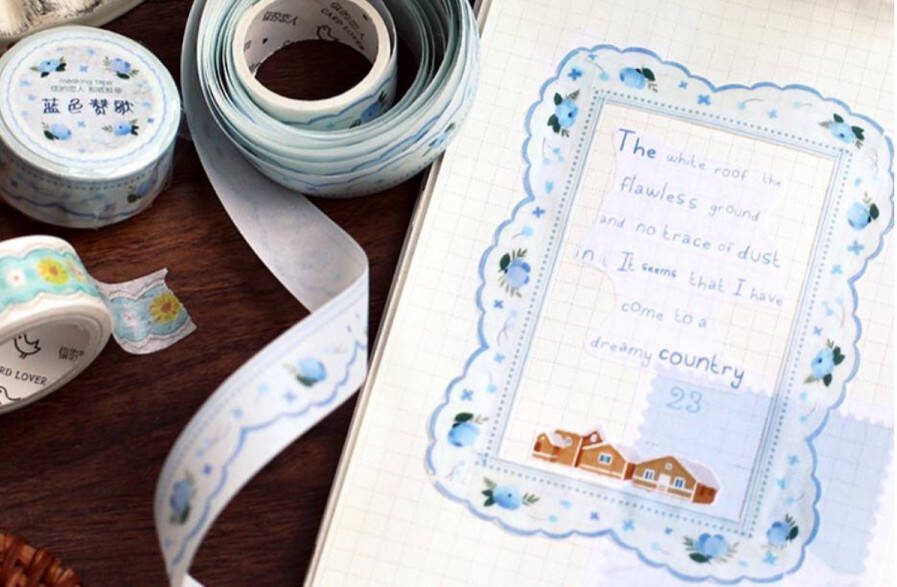 masking tape
信的恋人 和纸胶带
蓝色赞歌
信的恋人
CARD LOVER
信的恋人
ARD LOVER
The white roof the
flawless ground
and no trace of dust
in i It seems that I have
come to a
dreamy country
23